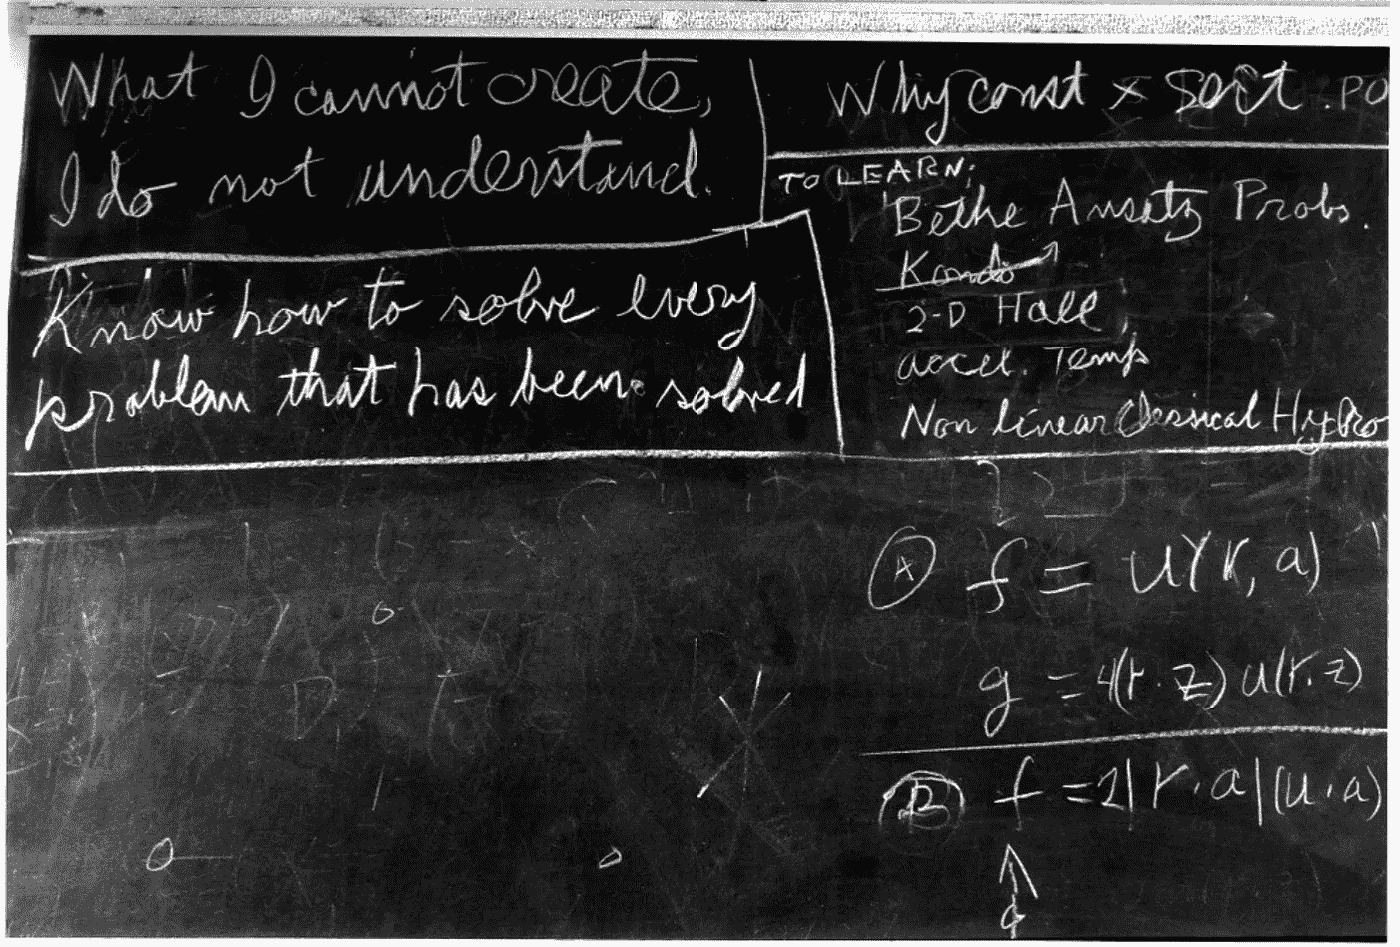 What I cannot create,
I do not understand.
Know how to solve every
problem that has been solved
Why const × sort . PO
TO LEARN:
Bethe Ansatz Probs.
Kondo
2-D Hall
accel. Temp
Non linear Classical Hydro
Ⓐ f = u(r, a)
g = 4(r · z) u(r, z)
Ⓑ f = 2|r · a|(u · a)